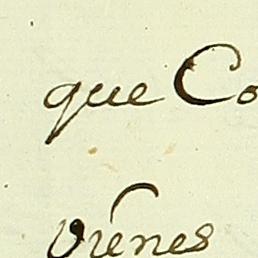 que Co
vienes